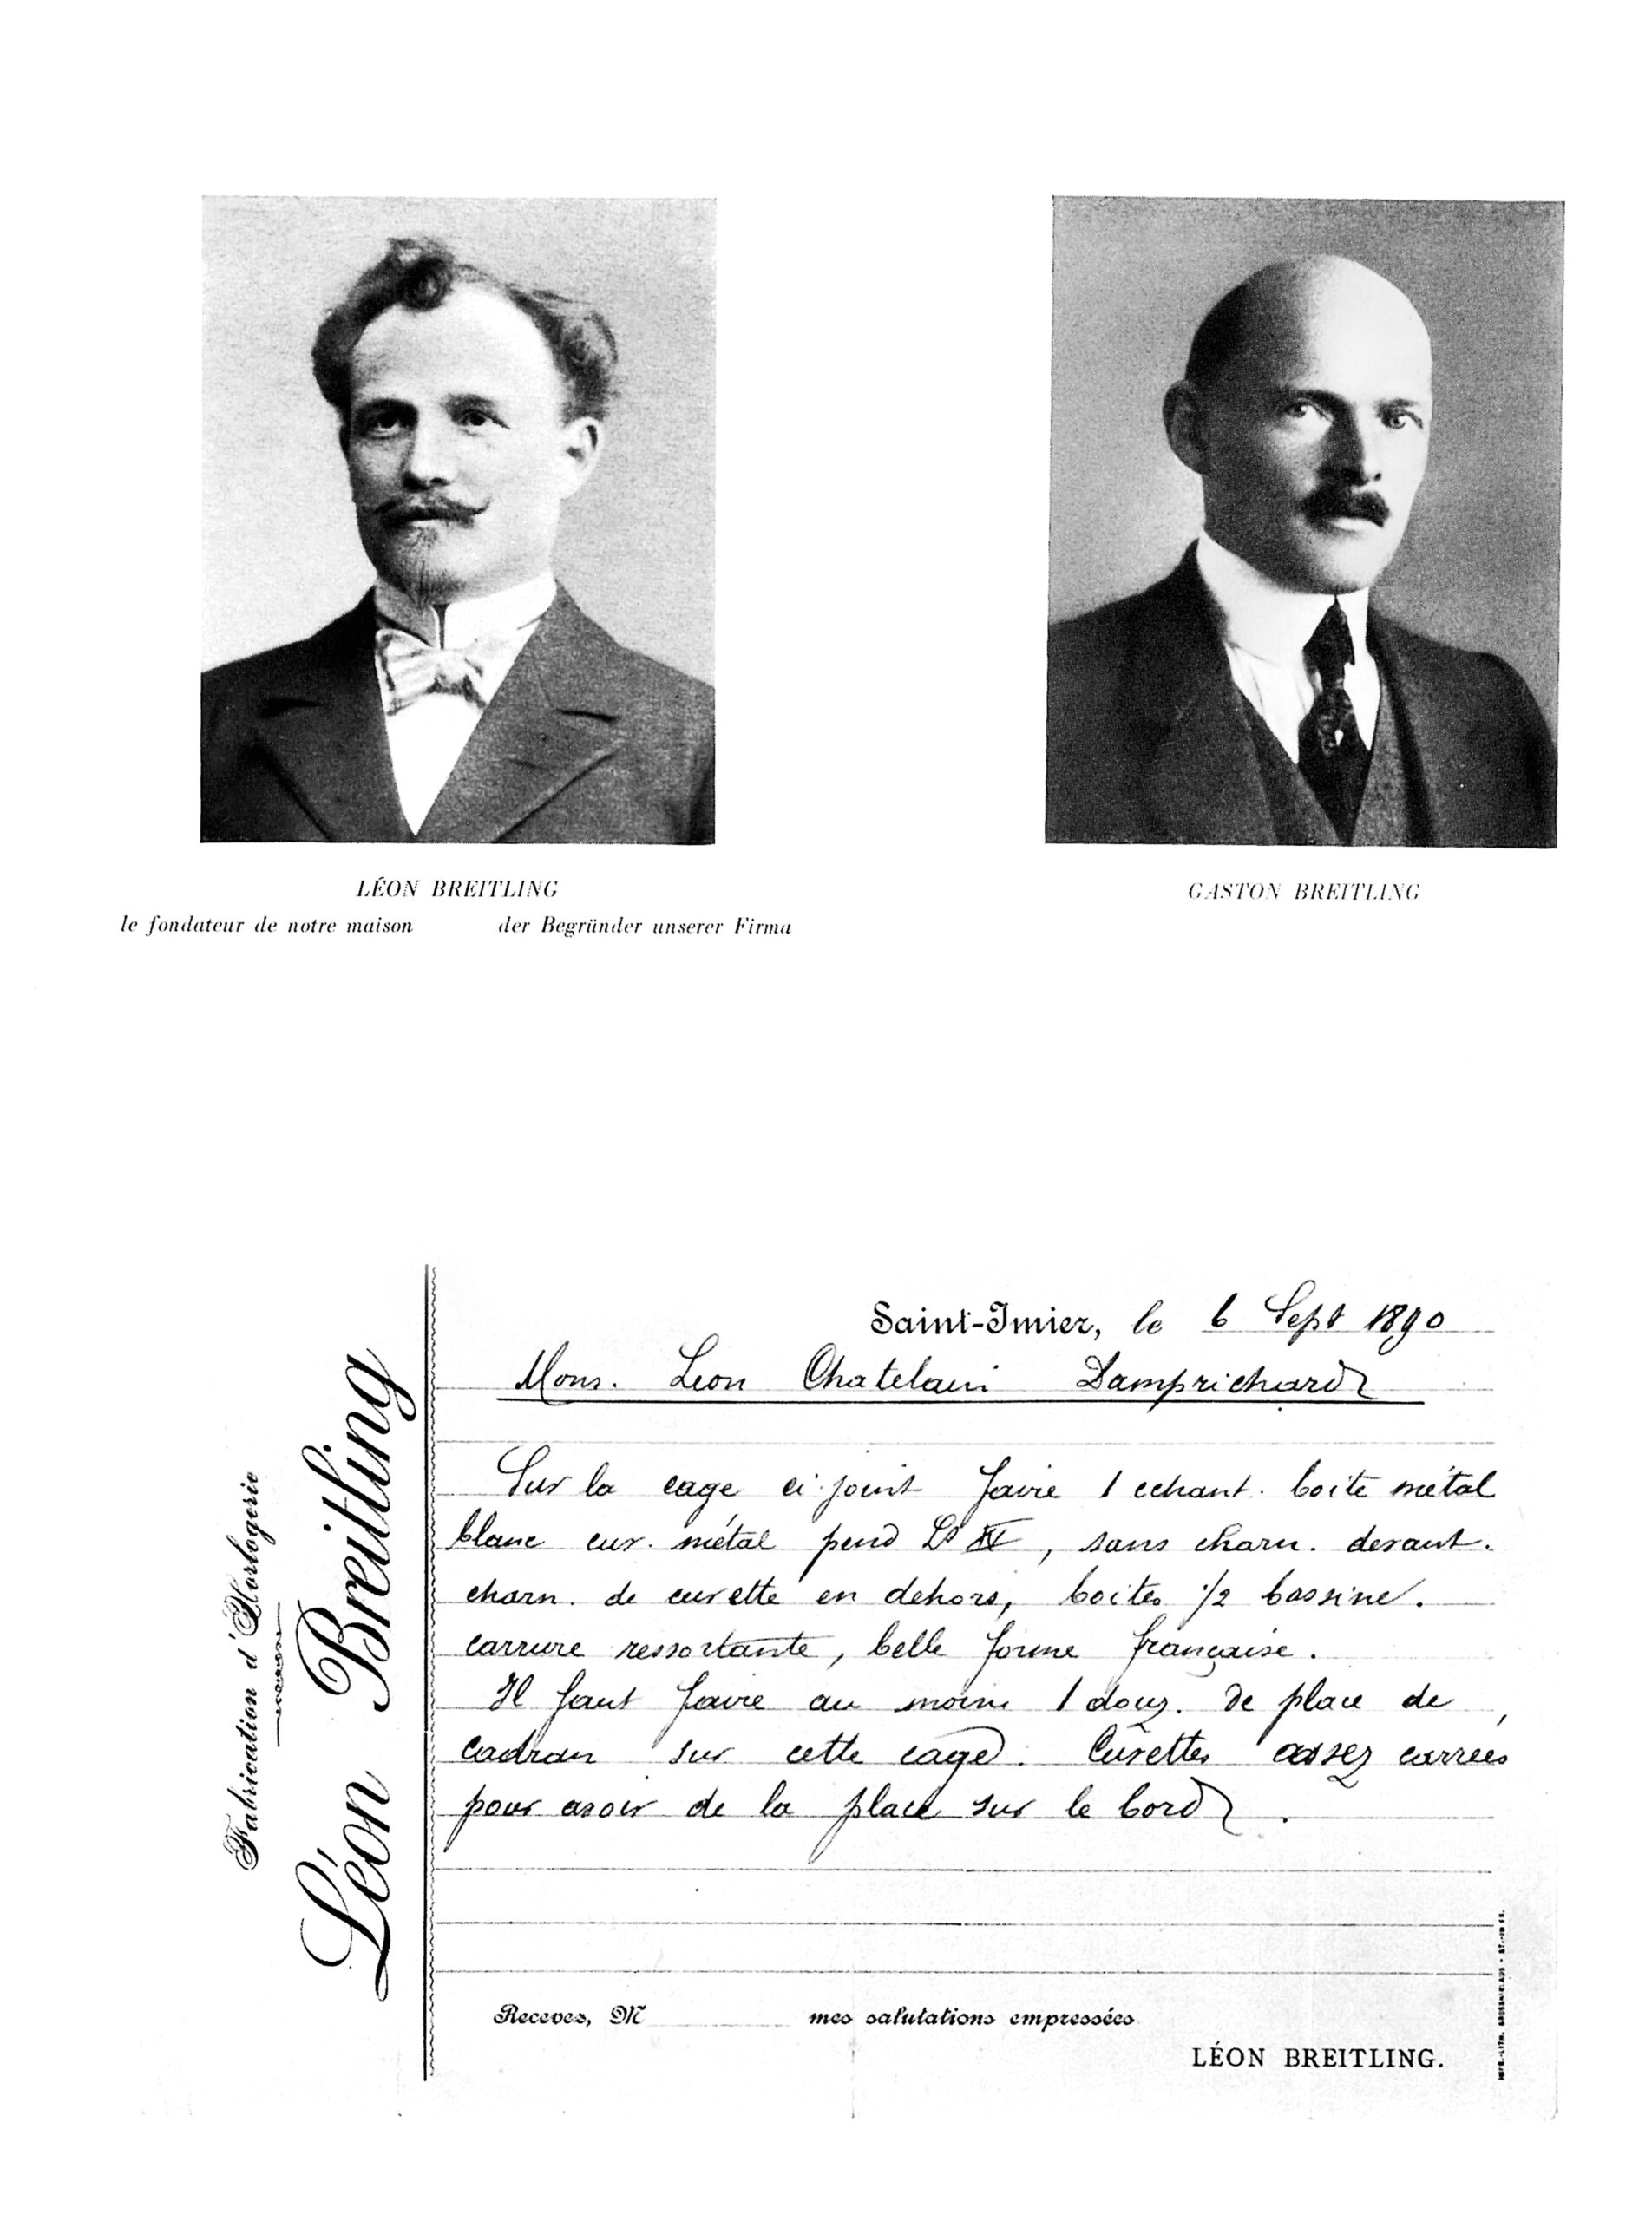 LÉON BREITLING
le fondateur de notre maison der Begründer unserer Firma
GASTON BREITLING
Fabrication d'Horlogerie
Léon Breitling
Saint-Imier, le 6 Sept 1890
Mons. Leon Chatelain Damprichard
Sur la cage ci-joint faire 1 echant. boite métal
blanc cuv. métal pend Ls XV, sans charn. devant.
charn. de cuvette en dehors, boites 1/2 bassine.
carrure ressortante, belle forme française.
Il faut faire au moins 1 douz. de place de
cadran sur cette cage. Cuvettes assez carrées
pour avoir de la place sur le bord.
Recevez, M mes salutations empressées
LÉON BREITLING.